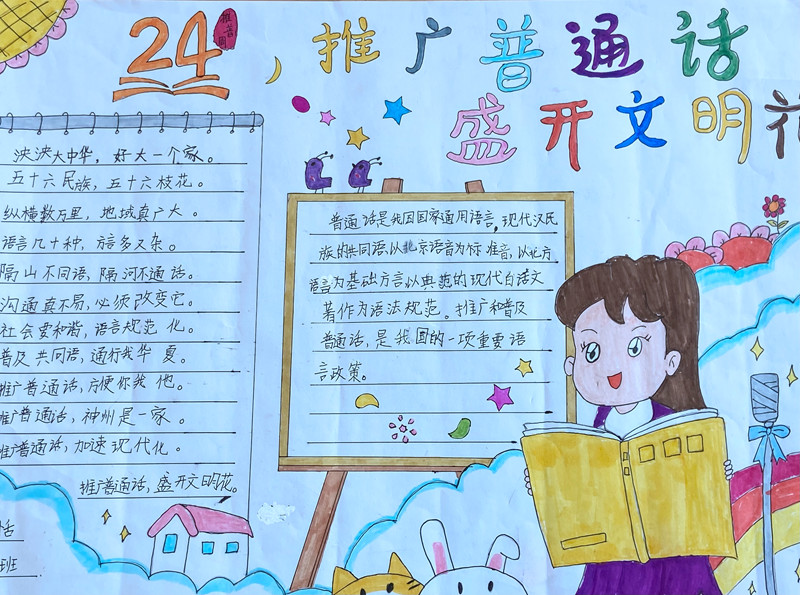 24
推普周
推广普通话
盛开文明花
泱泱大中华，好大一个家。
五十六民族，五十六枝花。
纵横数万里，地域真广大。
语言几十种，方言多又杂。
隔山不同语，隔河不通话。
沟通真不易，必须改变它。
社会要和谐，语言规范化。
普及共同语，通行我华夏。
推广普通话，方便你我他。
推广普通话，神州是一家。
推广普通话，加速现代化。
推广普通话，盛开文明花。
话
班
普通话是我国国家通用语言，现代汉民
族的共同语，以北京语音为标准音，以北方
语言为基础方言以典范的现代白话文
著作为语法规范。推广和普及
普通话，是我国的一项重要语
言政策。